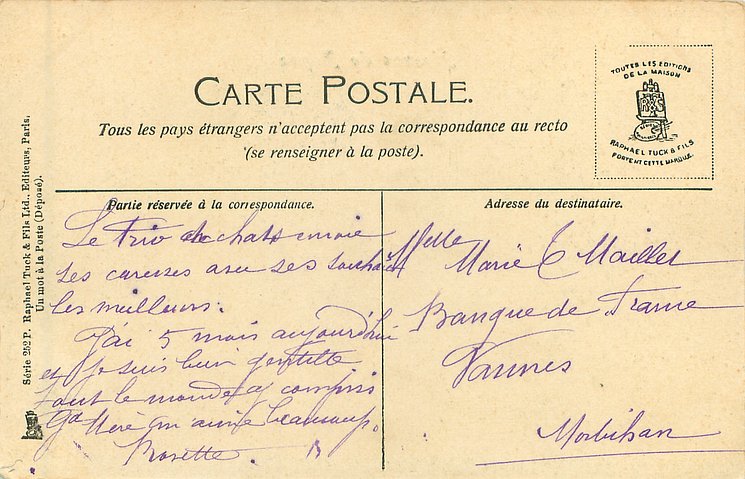 CARTE POSTALE.
Tous les pays étrangers n'acceptent pas la correspondance au recto
(se renseigner à la poste).
TOUTES LES EDITIONS
DE LA MAISON
RAPHAEL TUCK & FILS
PORTENT CETTE MARQUE.
Série 252 P. Raphael Tuck & Fils Ltd., Editeurs, Paris.
Un mot à la Poste (Déposé).
Partie réservée à la correspondance.
Le Trio de chats envoie
ses caresses avec ses souhaits
les meilleurs.
J'ai 5 mois aujourd'hui
et je suis bien gentille
tout le monde y compris
Mère m'aime beaucoup.
Rosette.
Adresse du destinataire.
Melle Marie Maillet
Banque de France
Vannes
Morbihan